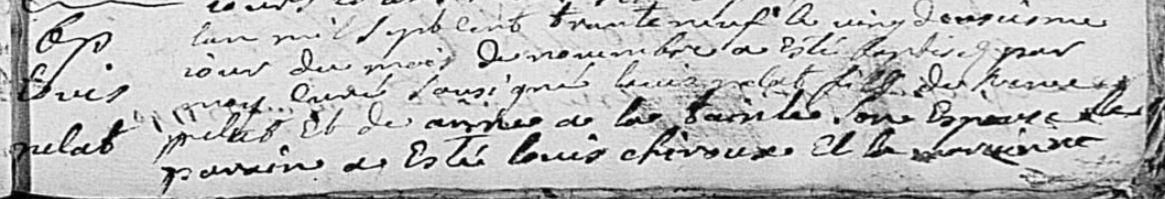 Bp
Louis
pelat
lan mil sept cent trante neuf le vingt deusieme
iour du mois de novembre a esté baptisé par
moy curé sousigné louis pelat fils de
pelat Et de anne de la sainte son Espouse le
parrain a Esté louis chiroux Et la marainne